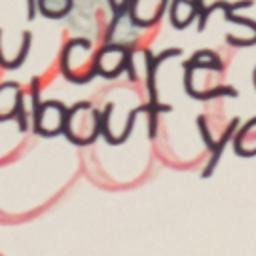 to yours
u care
about yo